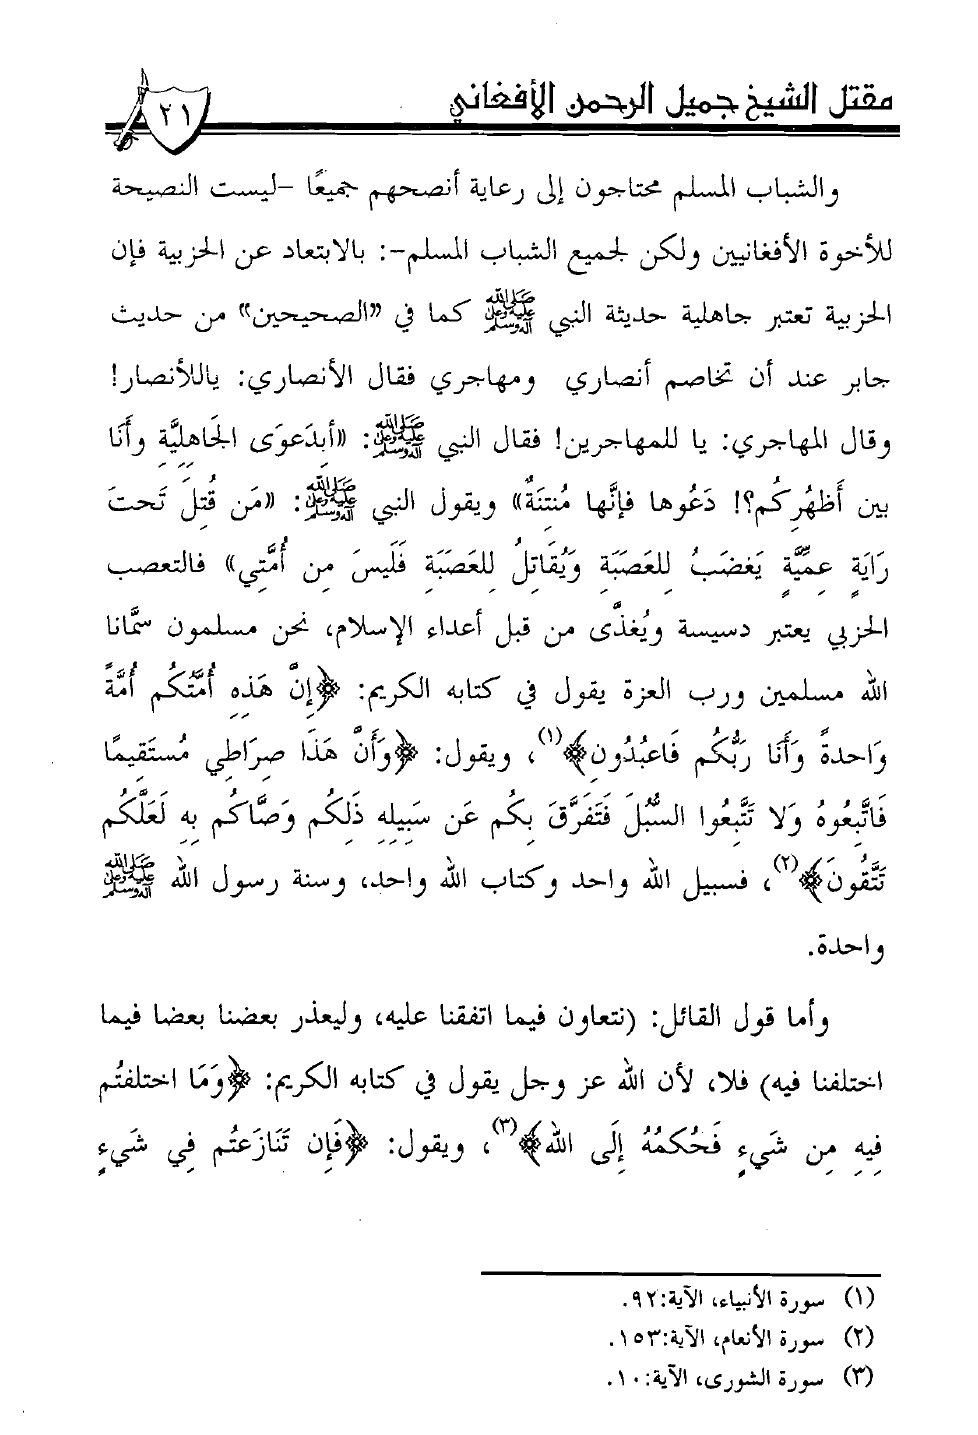 مقتل الشيخ جميل الرحمن الأفغاني
٢١
والشباب المسلم محتاجون إلى رعاية أنصحهم جميعًا -ليست النصيحة
للأخوة الأفغانيين ولكن لجميع الشباب المسلم-: بالابتعاد عن الحزبية فإن
الحزبية تعتبر جاهلية حديثة النبي ﷺ كما في «الصحيحين» من حديث
جابر عند أن تخاصم أنصاري ومهاجري فقال الأنصاري: ياللأنصار!
وقال المهاجري: يا للمهاجرين! فقال النبي ﷺ: «أبِدَعوَى الجَاهِلِيَّةِ وأَنَا
بين أَظهُرِكُم؟! دَعُوها فإنَّها مُنتِنَةٌ» ويقول النبي ﷺ: «مَن قُتِلَ تَحتَ
رَايَةٍ عِمِّيَّةٍ يَغضَبُ لِلعَصَبَةِ وَيُقَاتِلُ لِلعَصَبَةِ فَلَيسَ مِن أُمَّتِي» فالتعصب
الحزبي يعتبر دسيسة ويُغذَّى من قبل أعداء الإسلام، نحن مسلمون سمَّانا
الله مسلمين ورب العزة يقول في كتابه الكريم: ﴿إِنَّ هَذِهِ أُمَّتُكُم أُمَّةً
وَاحدةً وَأَنَا رَبُّكُم فَاعبُدُونِ﴾(١)، ويقول: ﴿وَأَنَّ هَذَا صِرَاطِي مُستَقِيمًا
فَاتَّبِعُوهُ وَلا تَتَّبِعُوا السُّبُلَ فَتَفَرَّقَ بِكُم عَن سَبِيلِهِ ذَلِكُم وَصَّاكُم بِهِ لَعَلَّكُم
تَتَّقُونَ﴾(٢)، فسبيل الله واحد وكتاب الله واحد، وسنة رسول الله ﷺ
واحدة.
وأما قول القائل: (نتعاون فيما اتفقنا عليه، وليعذر بعضنا بعضا فيما
اختلفنا فيه) فلا، لأن الله عز وجل يقول في كتابه الكريم: ﴿وَمَا اختلفتُم
فِيهِ مِن شَيءٍ فَحُكمُهُ إِلَى اللهِ﴾(٣)، ويقول: ﴿فَإِن تَنَازَعتُم فِي شَيءٍ
(١) سورة الأنبياء، الآية:٩٢.
(٢) سورة الأنعام، الآية:١٥٣.
(٣) سورة الشورى، الآية:١٠.